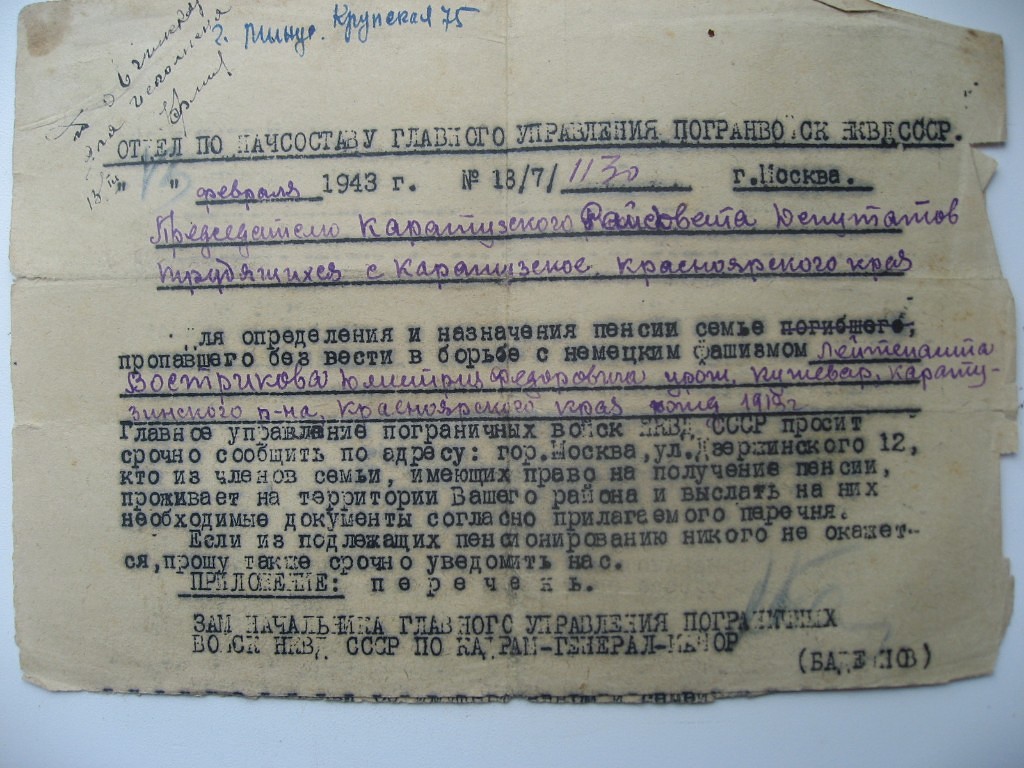 г. Минус. Крупская 75
для исполнения
ОТДЕЛ ПО НАЧСОСТАВУ ГЛАВНОГО УПРАВЛЕНИЯ ПОГРАНВОЙСК НКВД СССР.
" " февраля 1943 г. № 18/7/1130 г.Москва.
Председателю Каратузского Райсовета Депутатов
трудящихся с Каратузское, красноярского края
ля определения и назначения пенсии семье погибшего,
пропавшего без вести в борьбе с немецким фашизмом Лейтенанта
Вострикова Дмитрия Федоровича урож. Кужебар, Карату-
зинского р-на, Красноярского края 1919г
Главное управление пограничных войск НКВД СССР просит
срочно сообщить по адресу: гор.Москва,ул.Дзержинского 12,
кто из членов семьи, имеющих право на получение пенсии,
проживает на территории Вашего района и выслать на них
необходимые документы согласно прилагаемого перечня.
Если из подлежащих пенсионированию никого не окажет-
ся,прошу также срочно уведомить нас.
ПРИЛОЖЕНИЕ: п е р е ч е н ь.
ЗАМ НАЧАЛЬНИКА ГЛАВНОГО УПРАВЛЕНИЯ ПОГРАНИЧНЫХ
ВОЙСК НКВД СССР ПО КАДРАМ-ГЕНЕРАЛ-МАЙОР